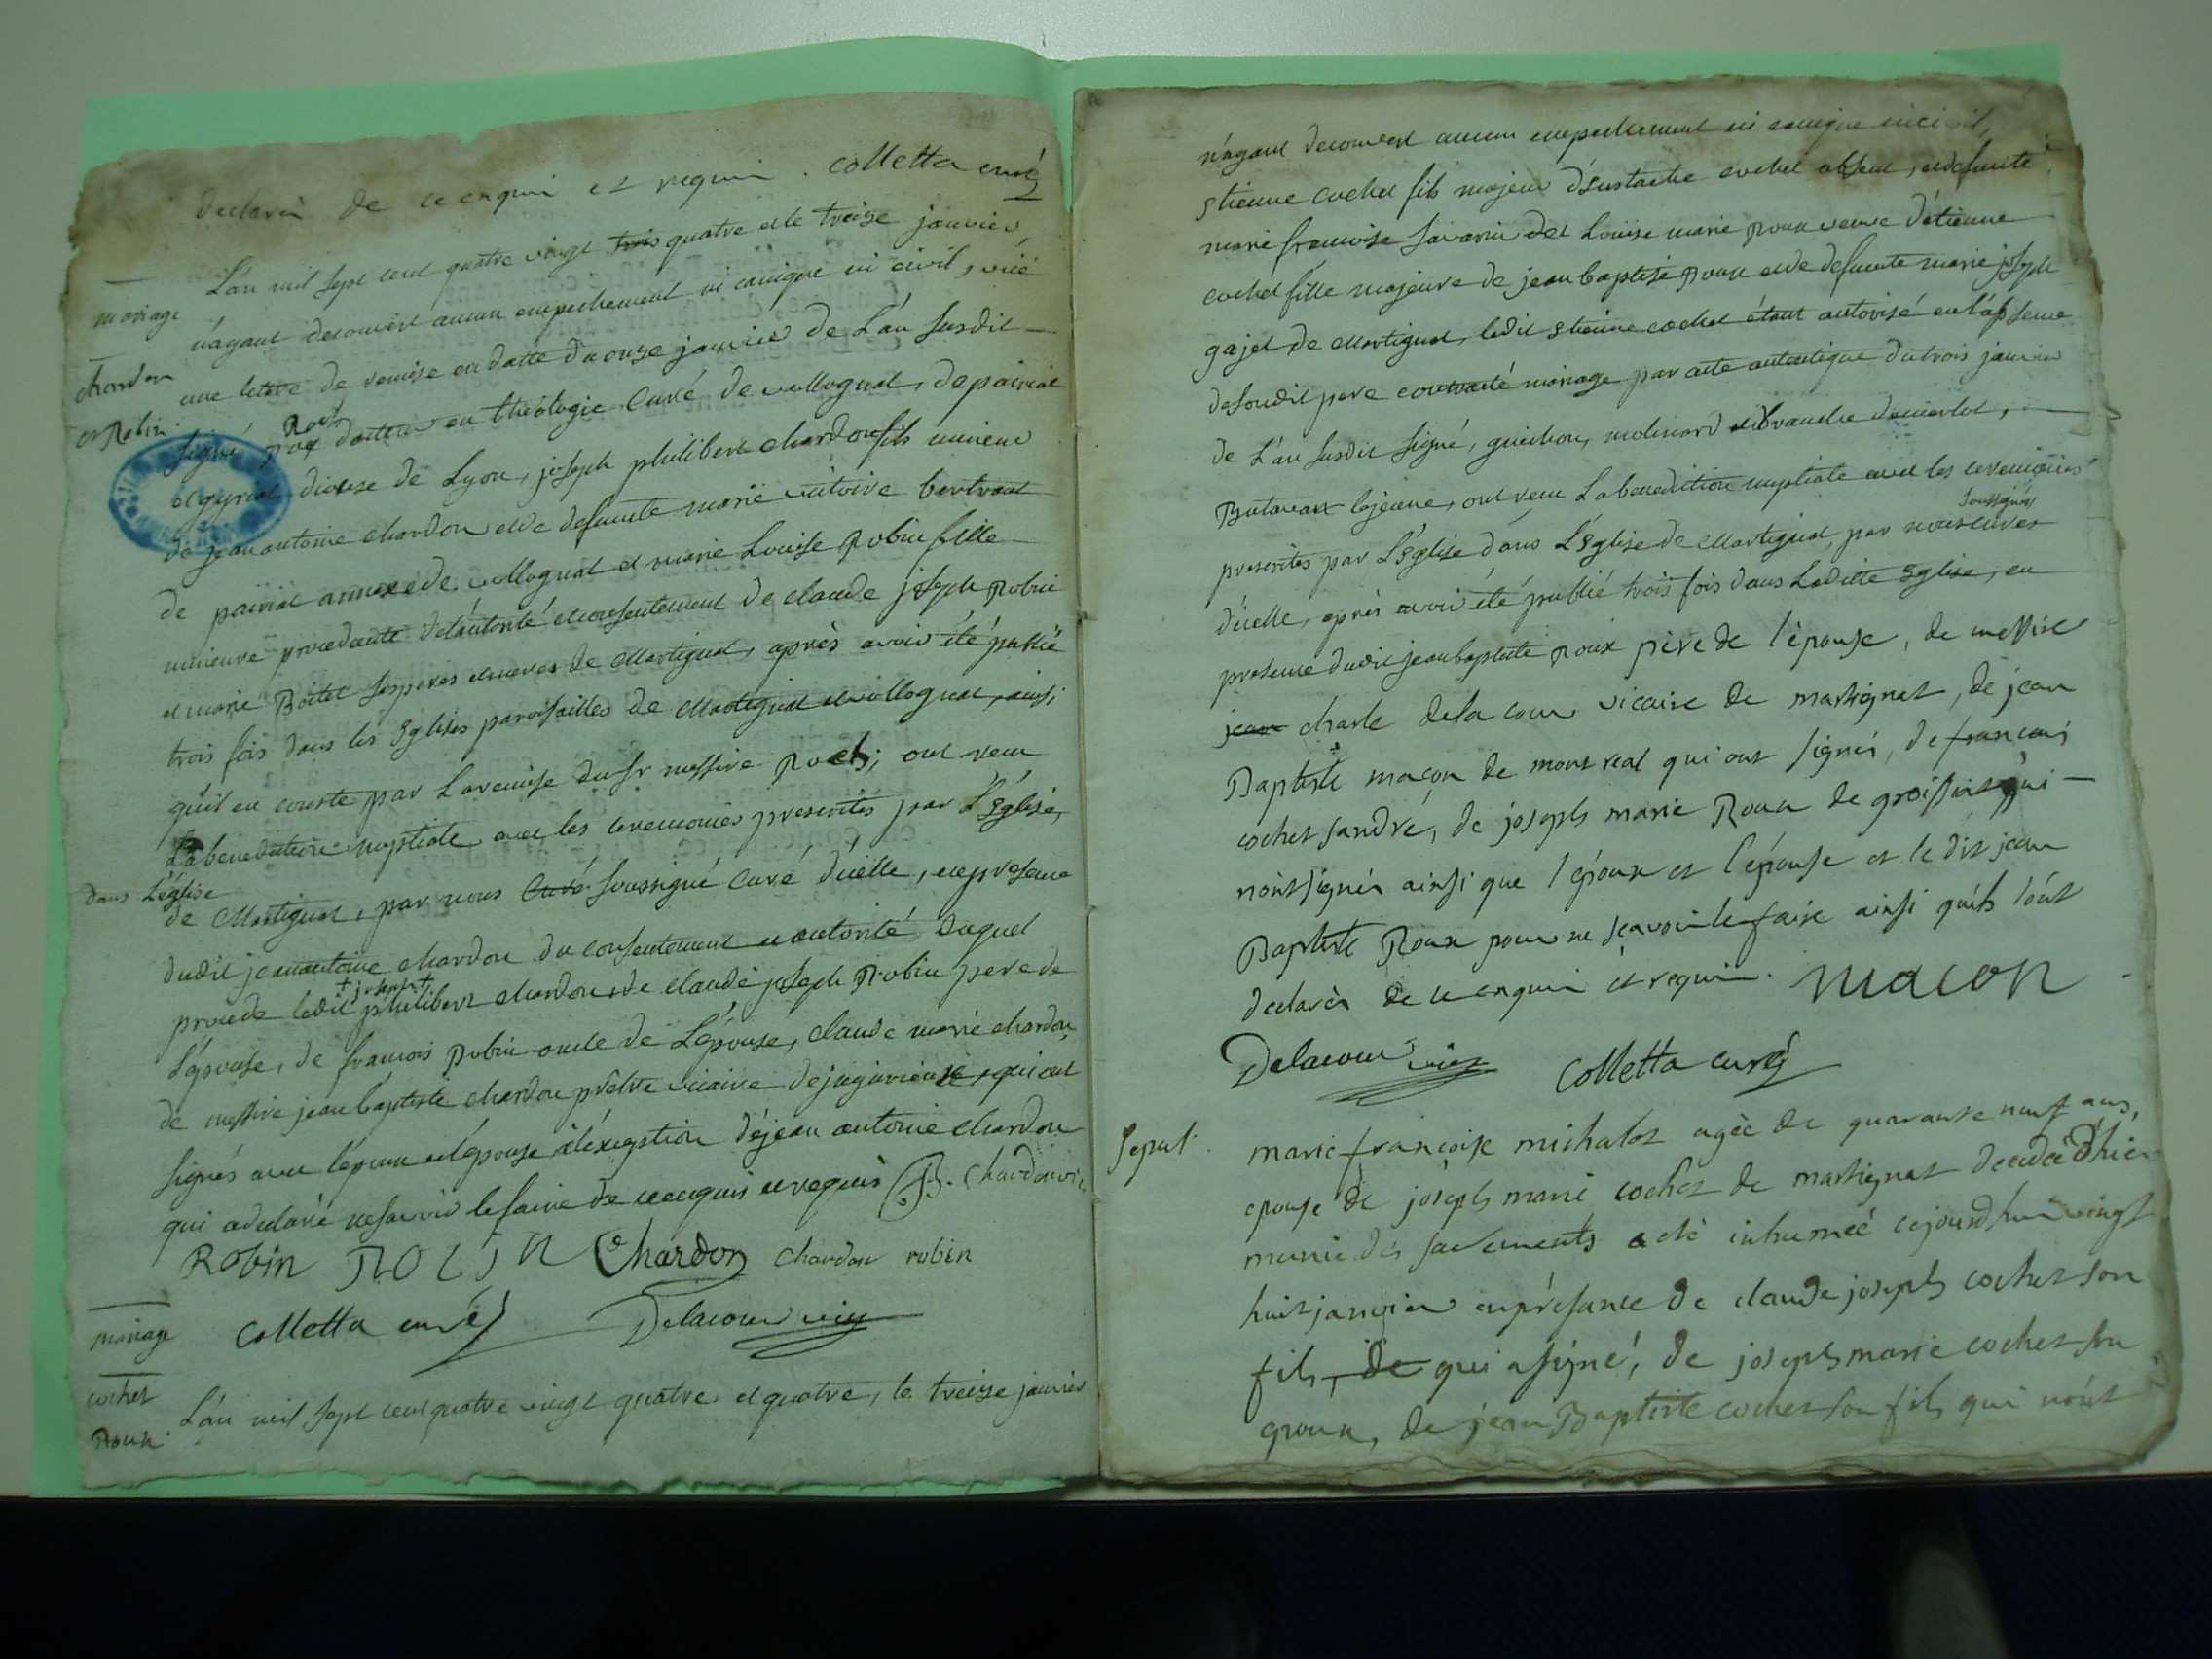 declarés de ce enquis et requis. colletta curé
mariage
L'an mil sept cent quatre vingt trois quatre et le treize janvier
n'ayant decouvert aucun empechement ni canique ni civil, vüe
chardon
une lettre de remise en datte du onze janvier de L'an susdit
et Robin
signé Roch docteur en théologie Curé de volognat, depairiat
et gyriat diocese de Lyon, joseph philibert chardon fils mineur
de jean antoine chardon et de defunte marie victoire bertrand
de pairiat annexe de vollognat et marie Louise Robin fille
mineure procedante de l'autorité et consentement de claude joseph Robin
et marie Boitel ses peres et meres de Martignat, après avoir été publié
trois fois dans les Eglises paroissialles de Martignat et vollognat, ainsi
qu'il en conste par La remise du sr messire Roch; ont recu
La benediction nuptiale avec les ceremonies prescrites par L'Eglise,
dans L'église
de Martignat, par nous Curé soussigné Curé d'icelle, en presence
dudit jean antoine chardon du consentement et autorité duquel
+ joseph +
procede ledit philibert chardon, de claude joseph Robin pere de
L'épouse, de francois Robin oncle de L'épouse, claude marie chardon,
de messire jean baptiste chardon prêtre vicaire de jujurieux, qui ont
signés avec l'epoux et l'epouse à l'exeption de jean antoine chardon
qui a declaré ne savoir le faire de ce enquis et requis JB. Chardon vic
Robin ROLIN Chardon chardon robin
colletta curé Delacour vic
mariage
cochet
Roux
L'an mil sept cent quatre vingt quatre et quatre, le treize janvier
n'ayant decouvert aucun empechement ni canique ni civil,
etienne cochet fils majeur d'eustache cochet absent, et defunte
marie francoise savarin et Louise marie Roux veuve d'étienne
cochet fille majeure de jean baptiste Roux et de defunte marie joseph
gajet de Martignat, ledit etienne cochet étant autorisé en l'absence
de son dit pere contracté mariage par acte autentique du trois janvier
de L'an susdit signé, guichon, molinard et
Butavant lejeune, ont recu La benediction nuptiale avec les ceremonies
soussignés
prescrites par L'Eglise dans L'Eglise de Martignat, par nous curés
d'icelle, après avoir été publié trois fois dans Laditte Eglise, en
presence dudit jean baptiste Roux père de l'épouse, de messire
jean charle delacour vicaire de martignat, de jean
Baptiste macon de mont real qui ont signés, de francois
cochet sandré, de joseph marie Roux de groissiat qui
n'ont signés ainsi que l'epoux et l'epouse et le dit jean
Baptiste Roux pour ne sçavoir le faire ainsi qu'ils l'ont
declarés de ce enquis et requis. MACON
Delacour vic colletta curé
sepul.
marie francoise michalot agée de quarante neuf ans,
epouse de joseph marie cochet de martignat decedée d'hier
munie des sacrements a eté inhumée cejourdhui vingt
huit janvier en présance de claude joseph cochet son
fils, de qui a signé, de joseph marie cochet son
epoux, de jean Baptiste cochet son fils qui n'ont